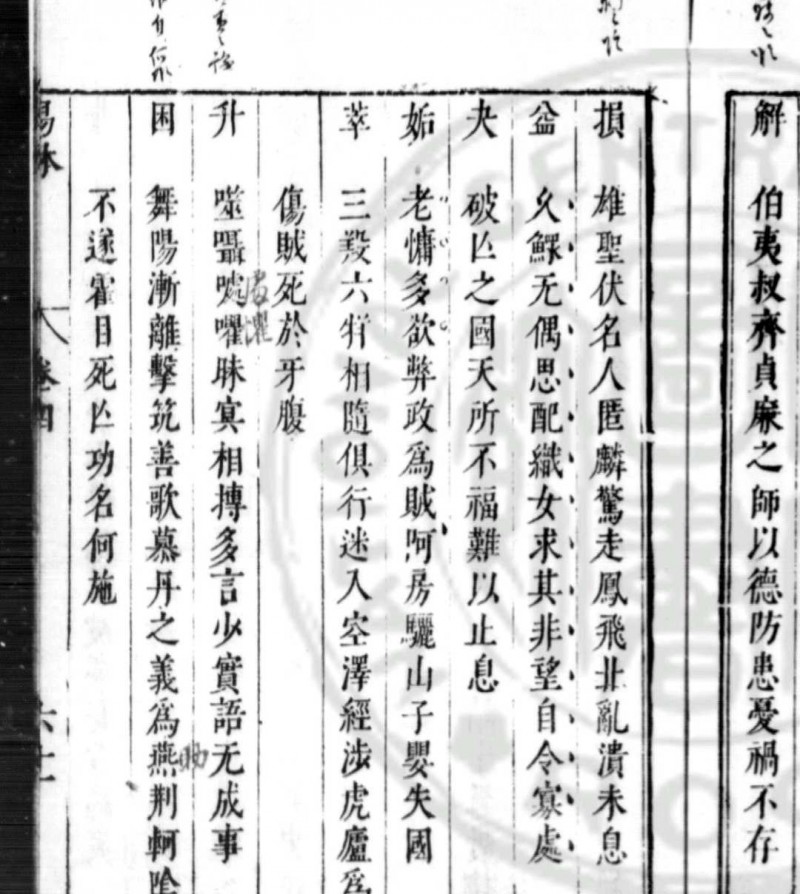 解 伯夷叔齊貞廉之師以德防患憂禍不存
損 雄聖伏名人匿麟驚走鳳飛北亂潰未息
益 久鰥无偶思配織女求其非望自令寡處
夬 破亾之國天所不福難以止息
姤 老慵多欲弊政爲賊阿房驪山子嬰失國
萃 三羖六牂相隨俱行迷入空澤經涉虎廬爲
傷賊死於牙腹
升 噬囁嚄嚾昧㝠相搏多言少實語无成事
困 舞陽漸離擊筑善歌慕丹之義爲燕荆軻陰
不遂霍目死亾功名何施
易林
卷四